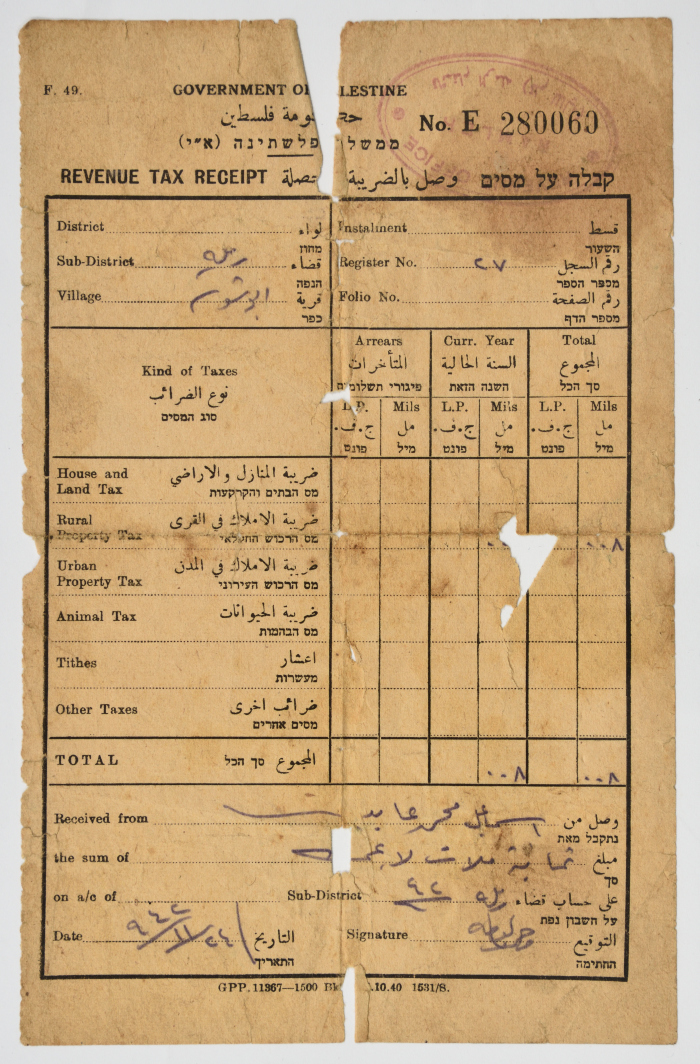 F. 49. GOVERNMENT OF LESTINE
ومة فلسطين
No. E 280060
ממשל פלשתינה (א״י)
REVENUE TAX RECEIPT وصل بالضريبة حصلة קבלה על מסים
OFFICE
District لواء
מחוז
Instalment قسط
השעור
Sub-District رملة قضاء
הנפה
Register No. ٢٧ رقم السجل
מספר הספר
Village قرية
כפר
Folio No. رقم الصفحة
מספר הדף
Kind of Taxes
نوع الضرائب
סוג המסים
Arrears
المتأخرات
פיגורי תשלומים
Curr. Year
السنة الحالية
השנה הזאת
Total
المجموع
סך הכל
L.P. Mils L.P. Mils L.P. Mils
ج.ف. مل ج.ف. مل ج.ف. مل
פונט מיל פונט מיל פונט מיל
House and ضريبة المنازل والاراضي
Land Tax מס הבתים והקרקעות
Rural ضريبة الاملاك في القرى
Property Tax מס הרכוש החקלאי ٠٠٨
Urban ضريبة الاملاك في المدن
Property Tax מס הרכוש העירוני
Animal Tax ضريبة الحيوانات
מס הבהמות
Tithes اعشار
מעשרות
Other Taxes ضرائب اخرى
מסים אחרים
TOTAL المجموع סך הכל ٠٠٨ ٠٠٨
Received from اسماعيل محمد عابد وصل من
נתקבל מאת
the sum of ثمانية ملات لا غير مبلغ
סך
on a/c of Sub-District رملة ٩٤٢ على حساب قضاء
על חשבון נפת
Date ٩٤٢/١١/٢٤ التاريخ
התאריך
Signature التوقيع
החתימה
GPP. 11367—1500 Bk .10.40 1531/S.